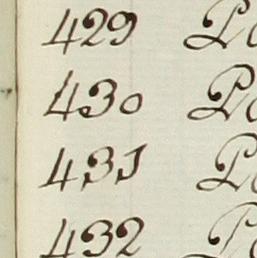 429
430
431
432